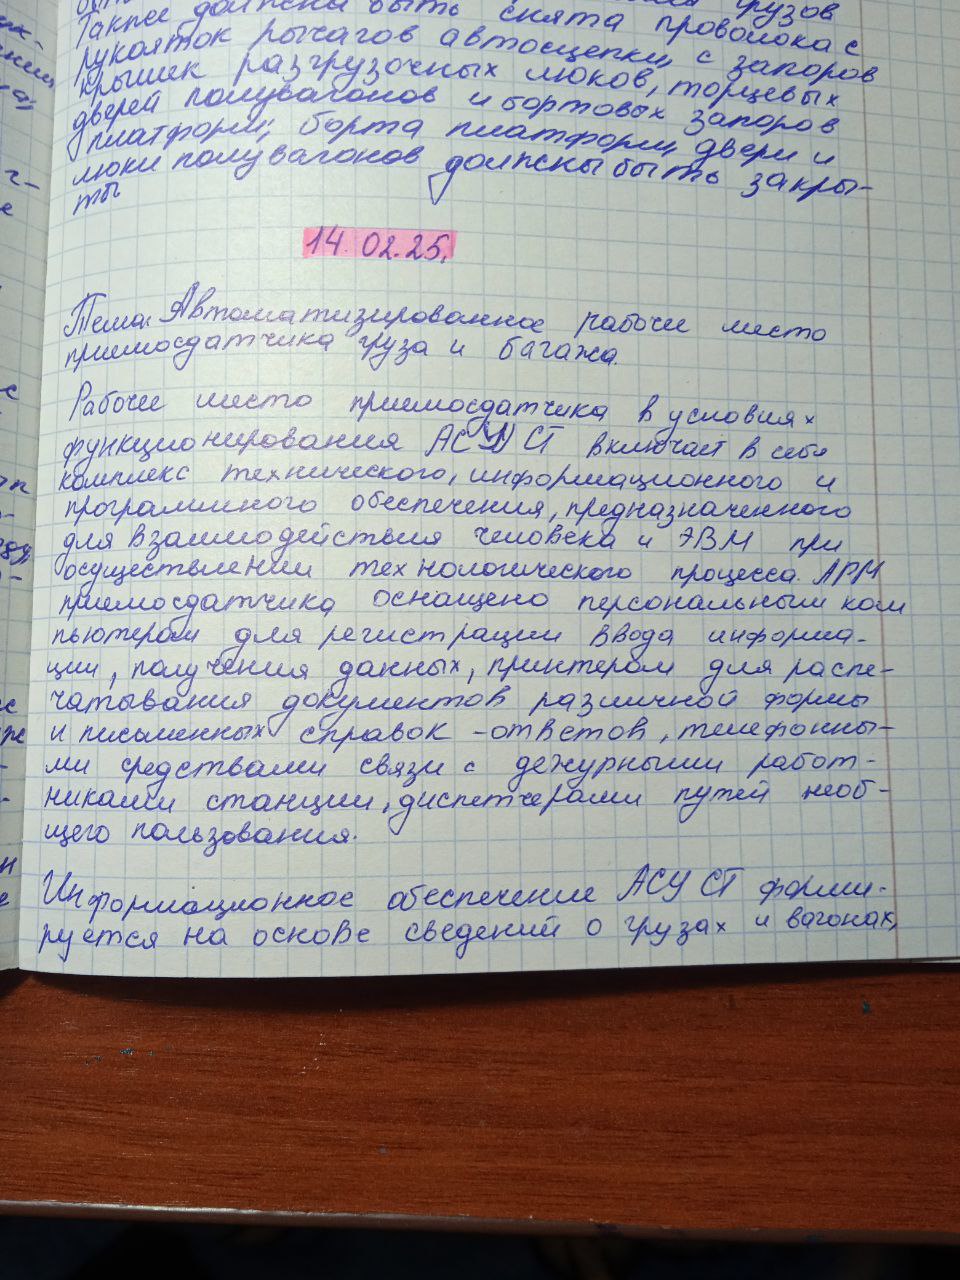 грузов
Также должны быть снята проволока с
рукояток рычагов автосцепки, с запоров
крышек разгрузочных люков, торцевых
дверей полувагонов и бортовых запоров
платформ; борта платформ, двери и
люки полувагонов должны быть закры-
ты
14.02.25.
Тема: Автоматизированное рабочее место
приемосдатчика груза и багажа.
Рабочее место приемосдатчика в условиях
функционирования АСУ СТ включает в себя
комплекс технического, информационного и
программного обеспечения, предназначенного
для взаимодействия человека и ЭВМ при
осуществлении технологического процесса. АРМ
приемосдатчика оснащено персональным ком
пьютером для регистрации ввода информа-
ции, получения данных, принтером для распе-
чатывания документов различной формы
и письменных справок-ответов, телефонны-
ми средствами связи с дежурными работ-
никами станции, диспетчерами путей необ-
щего пользования.
Информационное обеспечение АСУ СТ форми-
руется на основе сведений о грузах и вагонах,